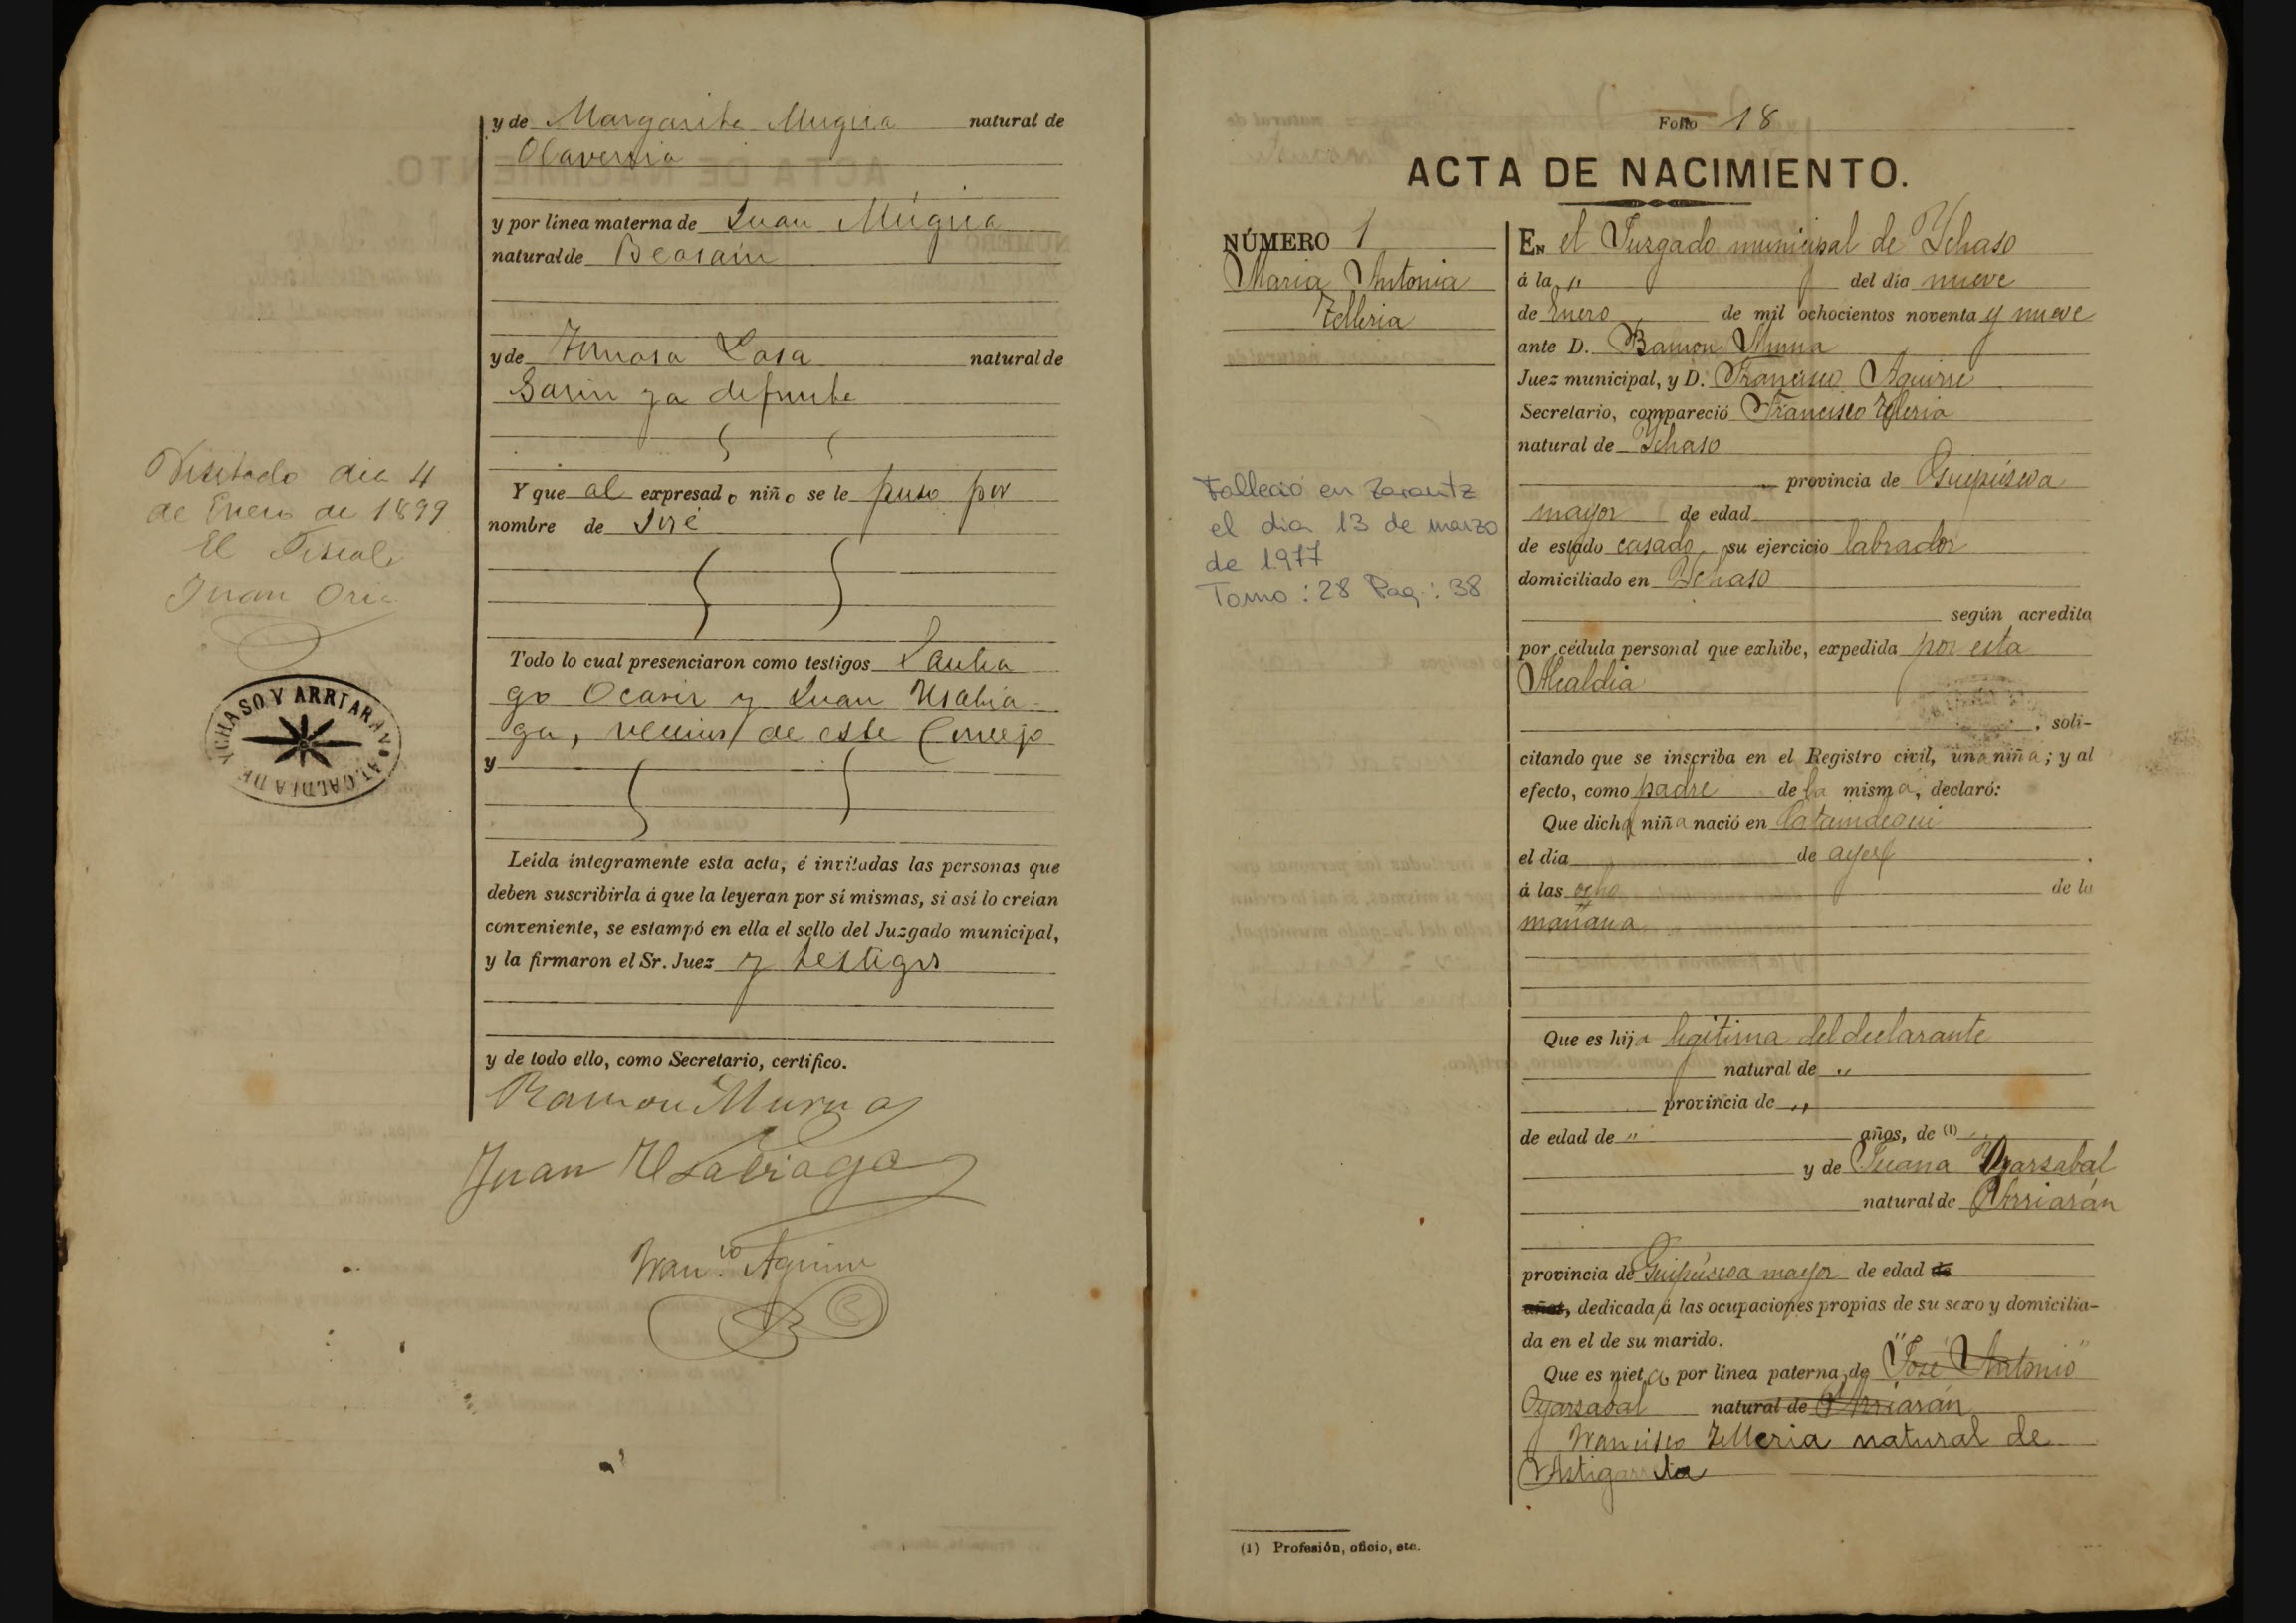 y de Margarita Mugica natural de
Olaverria
y por línea materna de Juan Múgica
natural de Beasain
y de Tomasa Lasa natural de
Garin ya difunta
Visitado dia 4
de Enero de 1899
El Fiscal
Juan Oria
Y que al expresado niño se le puso por
nombre de José
YCHASO Y ARRIARAN ALCALDIA DE
Todo lo cual presenciaron como testigos Santia
go Ocariz y Juan Usabia-
ga, vecinos de este Concejo
y
Leída íntegramente esta acta, é invitadas las personas que
deben suscribirla á que la leyeran por sí mismas, si así lo creían
conveniente, se estampó en ella el sello del Juzgado municipal,
y la firmaron el Sr. Juez y testigos
y de todo ello, como Secretario, certifico.
Ramon Murua
Juan Usabiaga
Fran.co Aguirre
Folio 18
ACTA DE NACIMIENTO.
NÚMERO 1
Maria Antonia
Telleria
Falleció en Zarautz
el dia 13 de marzo
de 1977
Tomo: 28 Pag.: 38
EN el Juzgado municipal de Ychaso
á la " del día nueve
de Enero de mil ochocientos noventa y nueve
ante D. Ramon Murua
Juez municipal, y D. Francisco Aguirre
Secretario, compareció Francisco Telleria
natural de Ychaso
provincia de Guipúscoa
mayor de edad
de estado casado su ejercicio labrador
domiciliado en Ychaso
según acredita
por cédula personal que exhibe, expedida por esta
Alcaldia
, soli-
citando que se inscriba en el Registro civil, una niña; y al
efecto, como padre de la misma, declaró:
Que dicha niña nació en
el día de ayer
á las ocho de la
mañana
Que es hija legitima del declarante
natural de "
provincia de "
de edad de " años, de (1) "
y de Juana Oyarzabal
natural de Arriarán
provincia de Guipúscoa mayor de edad de
años, dedicada á las ocupaciones propias de su sexo y domicilia-
da en el de su marido.
Que es nieta por línea paterna de "José Antonio"
Oyarzabal natural de Arriarán
Francisco Telleria natural de
Astigarreta
(1) Profesión, oficio, etc.